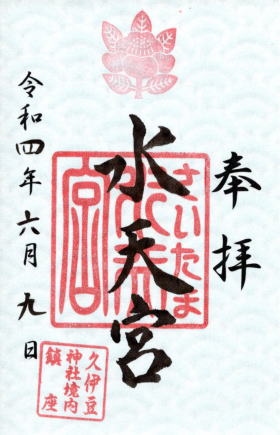 奉拝
水天宮
さいたま
水天宮
令和四年六月九日
久伊豆
神社境内
鎮座